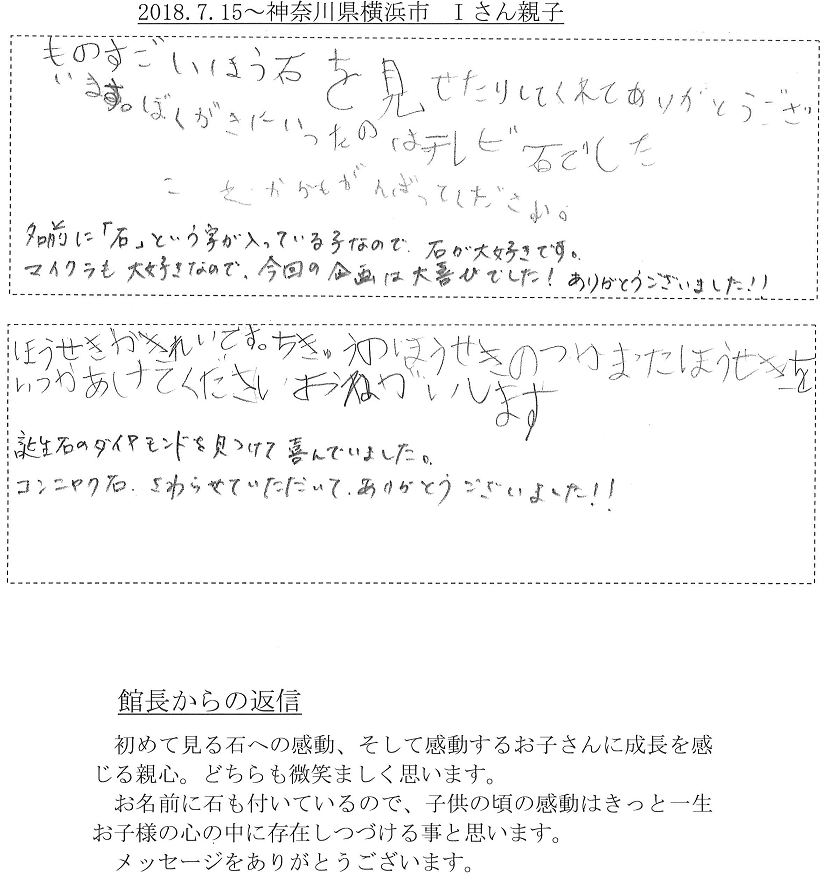 2018.7.15～神奈川県横浜市　Ｉさん親子
ものすごいほう石を見せたりしてくれてありがとうござ
います。ぼくがきにいったのはテレビ石でした
これからもがんばってください。
名前に「石」という字が入っている子なので、石が大好きです。
マイクラも大好きなので、今回の企画は大喜びでした！ありがとうございました！！
ほうせきがきれいです。ちきゅうのほうせきの またほうせきを
いつかあけてください おねがいします
誕生石のダイヤモンドを見つけて喜んでいました。
コンニャク石、さわらせていただいて、ありがとうございました！！
館長からの返信
初めて見る石への感動、そして感動するお子さんに成長を感
じる親心。どちらも微笑ましく思います。
お名前に石も付いているので、子供の頃の感動はきっと一生
お子様の心の中に存在しつづける事と思います。
メッセージをありがとうございます。